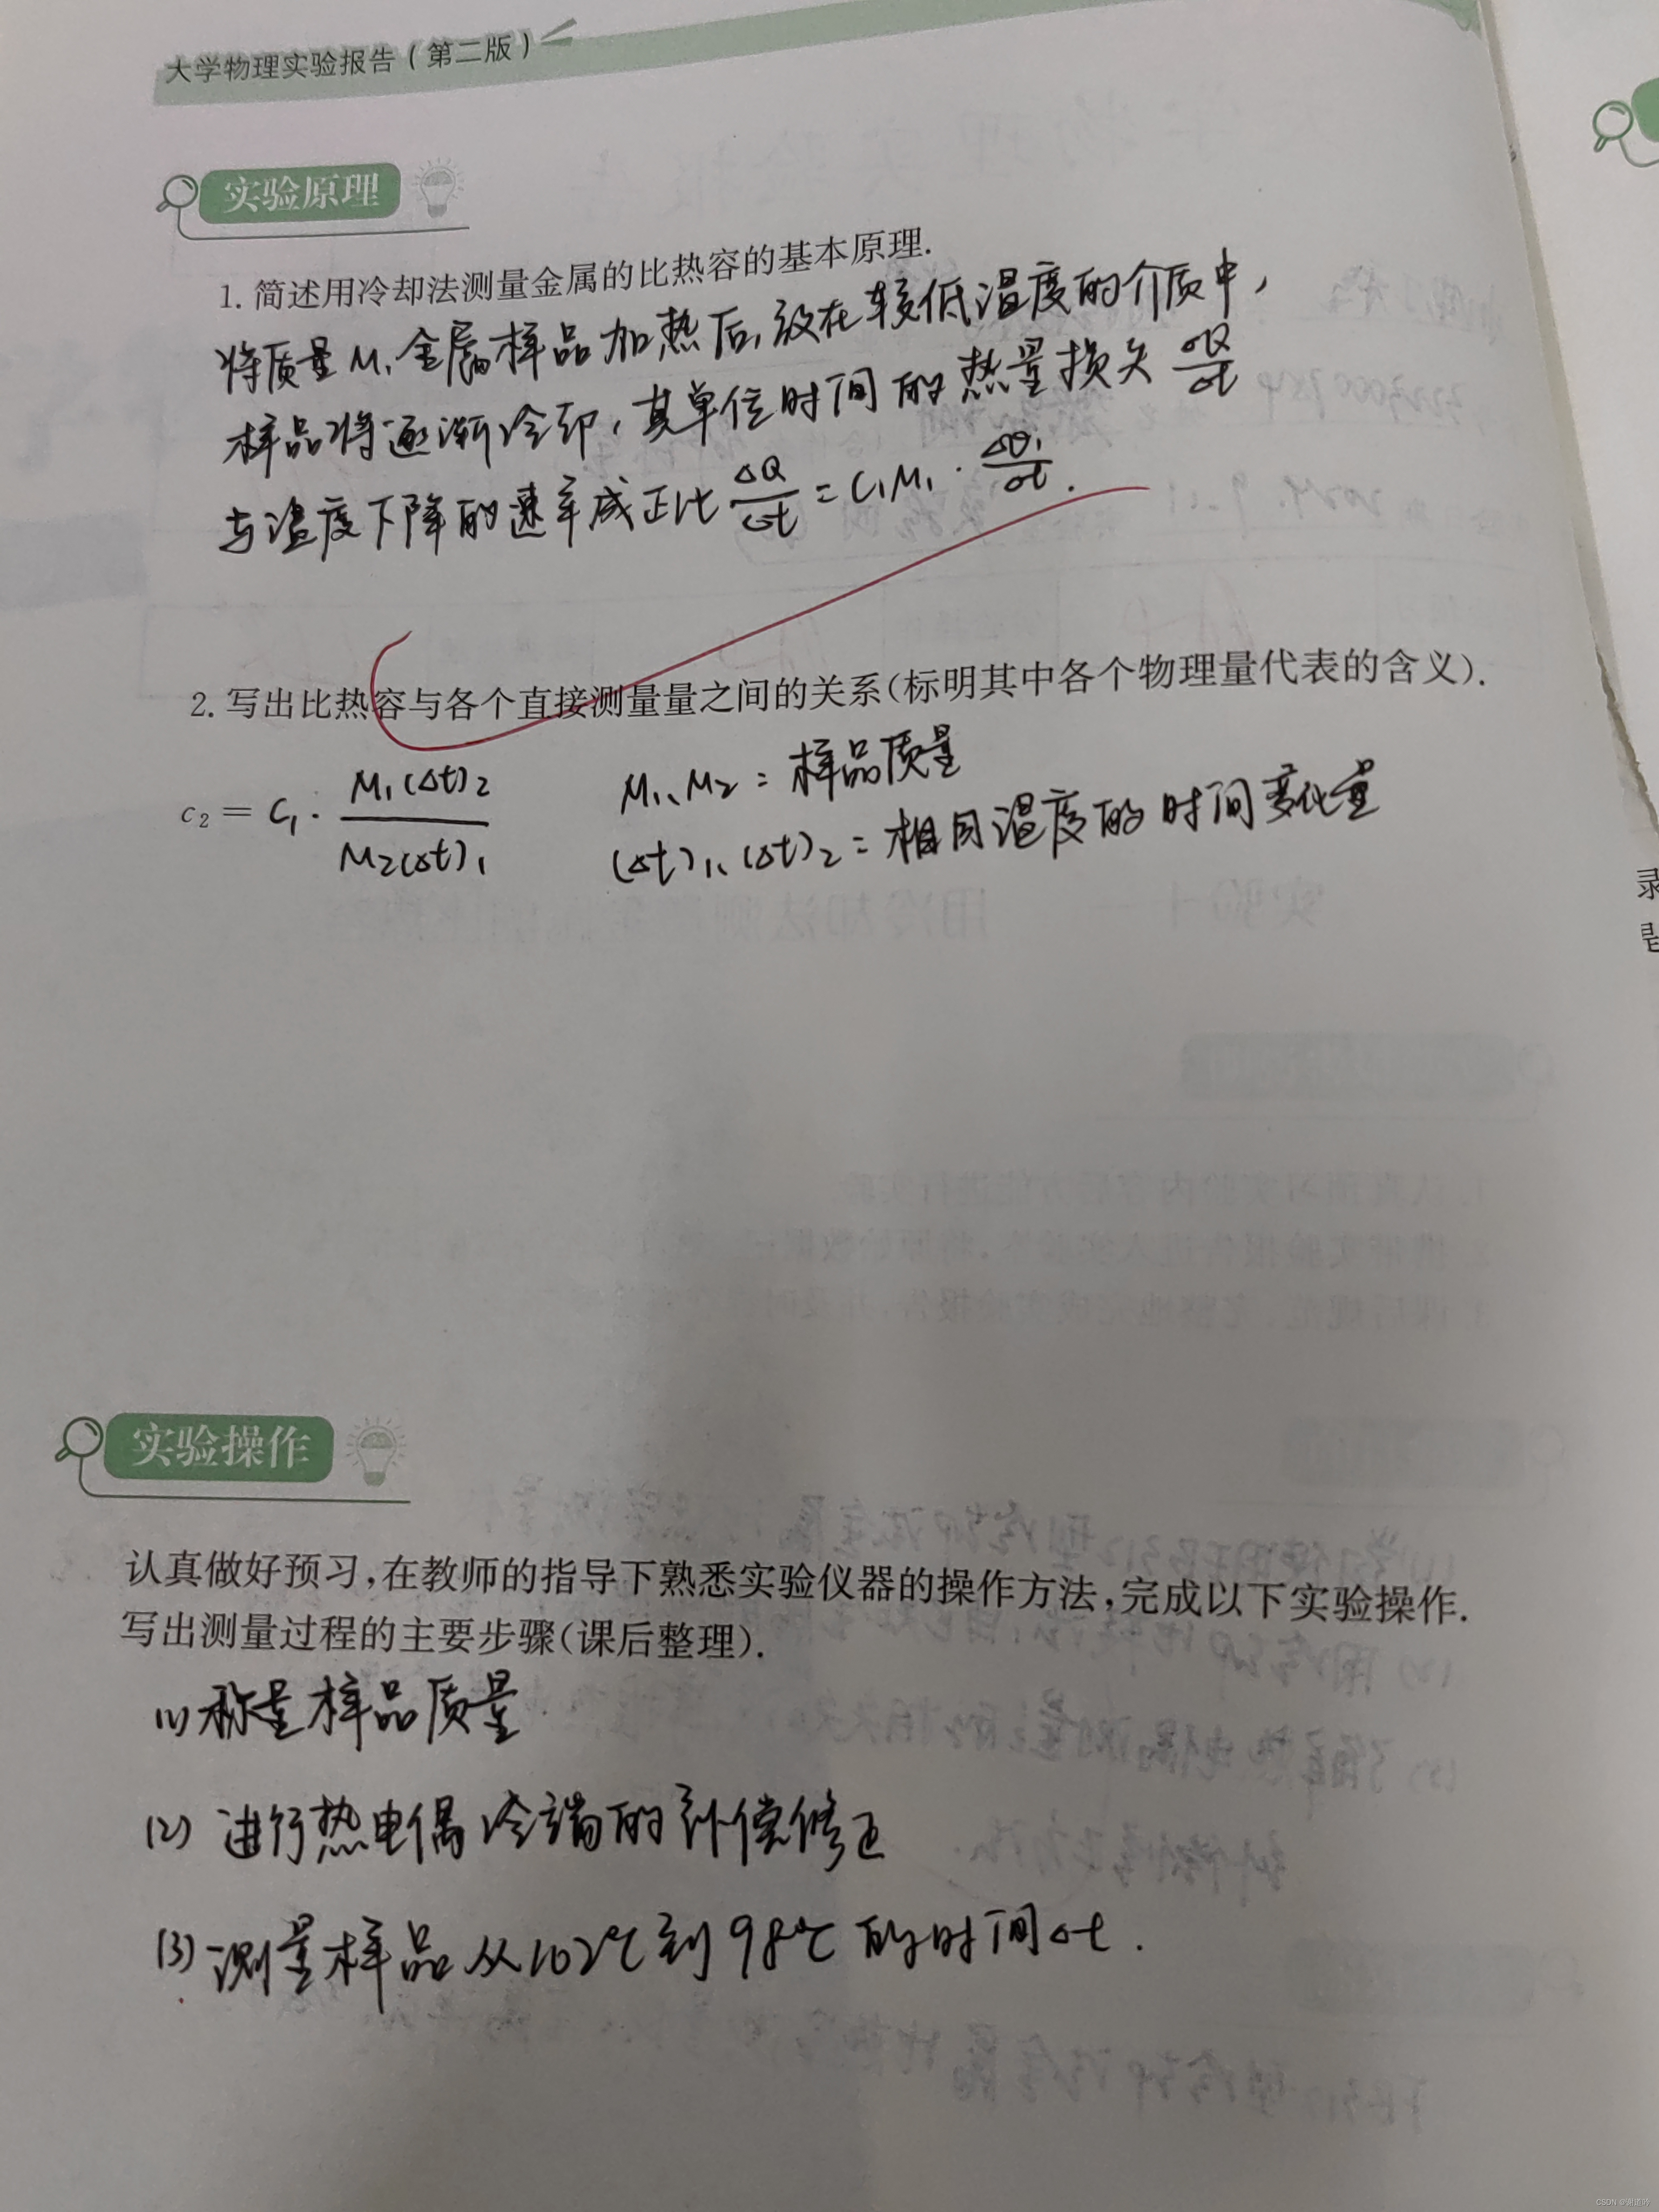 大学物理实验报告(第二版)
实验原理
1. 简述用冷却法测量金属的比热容的基本原理.
将质量M₁金属样品加热后,放在较低温度的介质中,
样品将逐渐冷却,其单位时间的热量损失 ΔQ/Δt
与温度下降的速率成正比 ΔQ/Δt = C₁M₁ · Δθ₁/Δt.
2. 写出比热容与各个直接测量量之间的关系(标明其中各个物理量代表的含义).
c₂ = C₁ · M₁(Δt)₂ / M₂(Δt)₁
M₁、M₂ = 样品质量
(Δt)₁、(Δt)₂ = 相同温度的时间变化量
实验操作
认真做好预习,在教师的指导下熟悉实验仪器的操作方法,完成以下实验操作.
写出测量过程的主要步骤(课后整理).
(1) 称量样品质量
(2) 进行热电偶冷端的补偿修正
(3) 测量样品从102℃到98℃的时间Δt.
录
CSDN @谢道吟